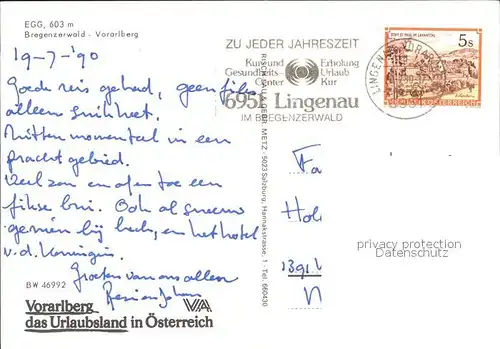 EGG, 603 m
Bregenzerwald - Vorarlberg
19-7-'90
Goede reis gehad, geen file
alleen
Zitten momenteel in een
prachtgebied.
Veel zon en af en toe een
fikse bui. Ook al
en het hotel
v.d. Koningin.
Groeten van ons allen
BW 46992
Vorarlberg
das Urlaubsland in Österreich
VA
ZU JEDER JAHRESZEIT
Kur und Erholung
Gesundheits- Urlaub
Center Kur
6951 Lingenau
IM BREGENZERWALD
5 S
STIFT ST. PAUL IM LAVANTTAL
REPUBLIK ÖSTERREICH
LINGENAU, VORARLB
5023 Salzburg, Harnakstrasse, 1 - Tel. 660430
Fa
Hol
1391
privacy protection
Datenschutz